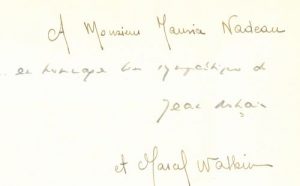 A Monsieur Maurice Nadeau
en hommage bien sympathique de
Jean
et Marcel